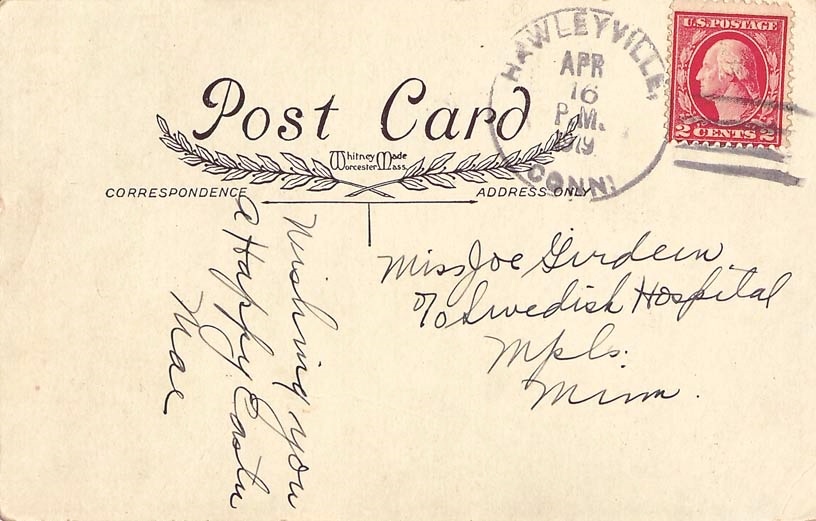 Post Card
Whitney Made
Worcester Mass.
CORRESPONDENCE
ADDRESS ONLY
HAWLEYVILLE,
APR
16
P.M.
19
CONN.
U.S. POSTAGE
2 CENTS 2
Wishing you
a Happy Easter
Mae
Miss Joe
c/o Swedish Hospital
Mpls.
Minn.